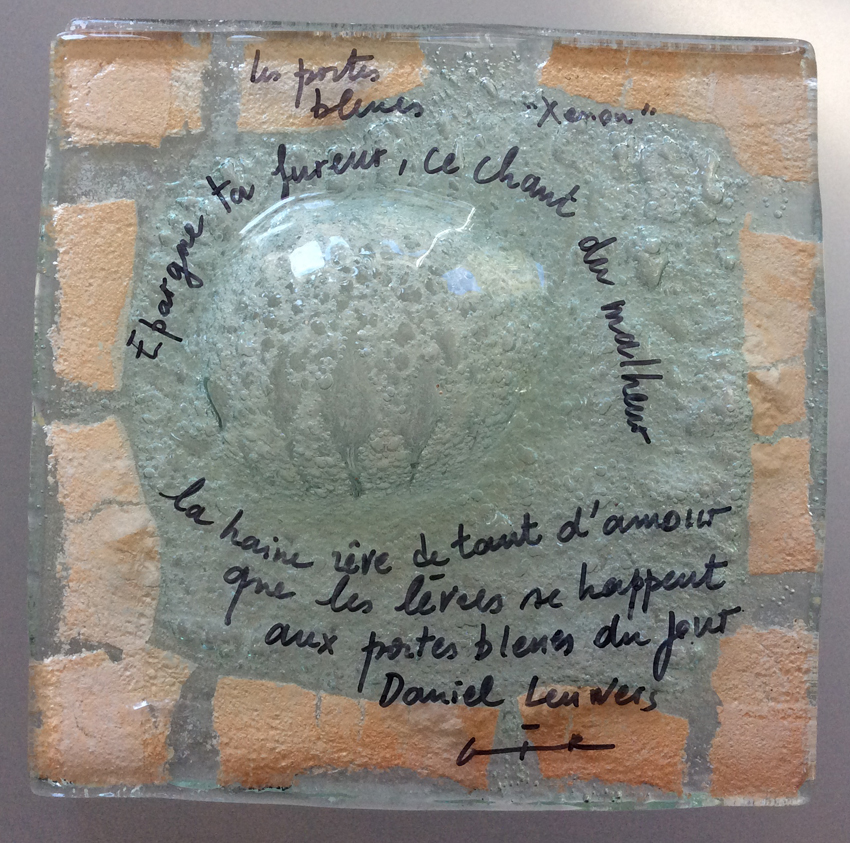 les portes
bleues
"Xenon"
Épargne ta fureur, ce chant du malheur
la haine rêve de tant d'amour
que les lèvres se happent
aux portes bleues du jour
Daniel Leuwers